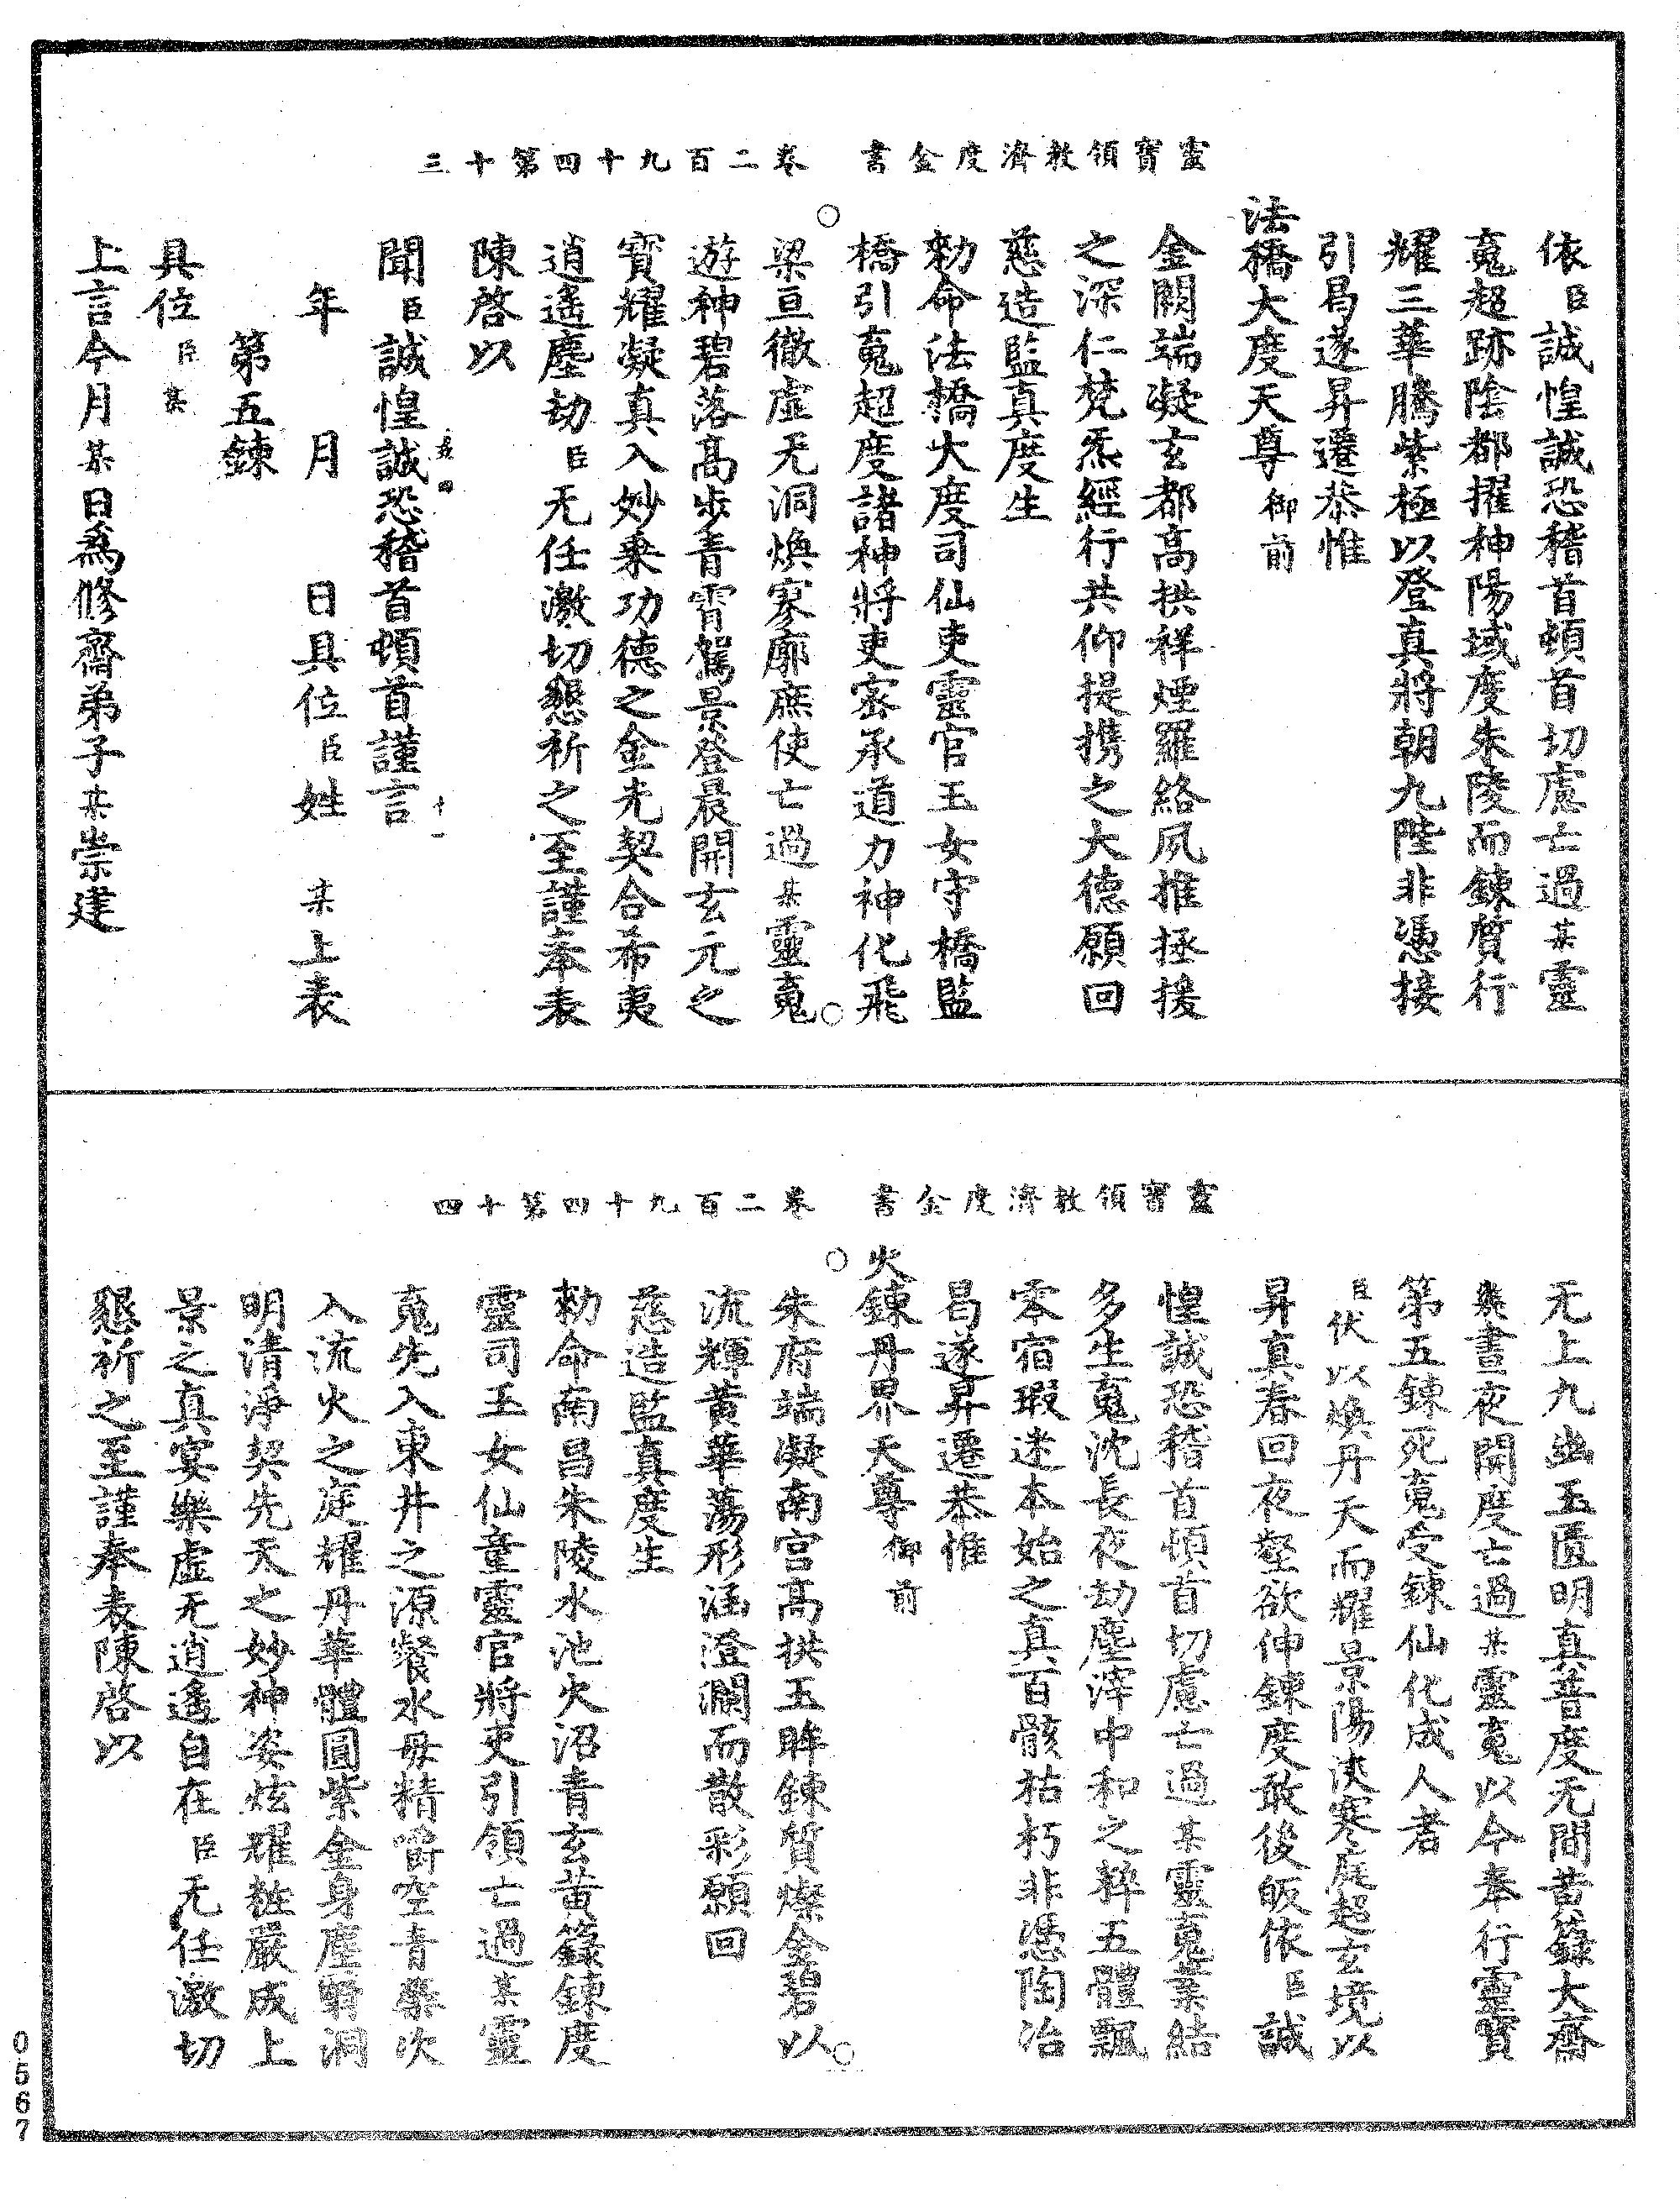 靈寶領教濟度金書　卷二百九十四第十三
依臣誠惶誠恐稽首頓首切慮亡過某靈
䰟超跡陰都擢神陽域度朱陵而鍊質行
耀三華騰紫極以登真將朝九陛非憑接
引曷遂昇遷恭惟
法橋大度天尊御前
金闕端凝玄都高拱祥煙羅絡夙推拯援
之深仁梵炁經行共仰提携之大德願回
慈造監真度生
勑命法橋大度司仙吏靈官玉女守橋監
橋引䰟超度諸神將吏密承道力神化飛
梁亘徹虛无洞煥寥廓庶使亡過某靈䰟
遊神碧落高步青霄駕景登晨開玄元之
寶耀凝真入妙乗功德之金光契合希夷
逍遙塵劫臣无任激切懇祈之至謹奉表
陳啓以
聞臣誠惶誠恐稽首頓首謹言
年　月　日具位臣姓　某上表
第五鍊
具位臣某
上言今月某日爲修齋弟子某崇建
靈寶領教濟度金書　卷二百九十四第十四
无上九幽玉匱明真普度无間黄籙大齋
幾晝夜開度亡過某靈䰟以今奉行靈寶
第五鍊死䰟受鍊仙化成人者
臣伏以煥丹天而耀景陽浹寒庭超玄境以
昇真春回夜壑欲伸鍊度敢後皈依臣誠
惶誠恐稽首頓首切慮亡過某靈䰟業結
多生䰟沈長夜劫塵滓中和之粹五體飄
零宿瑕迷本始之真百骸枯朽非憑陶冶
曷遂昇遷恭惟
火鍊丹界天尊御前
朱府端凝南宫高拱玉眸鍊質燦金碧以
流輝黄華蕩形涵澄瀾而散彩願回
慈造監真度生
勑命南昌朱陵水池火沼青玄黄籙鍊度
靈司玉女仙童靈官將吏引領亡過某靈
䰟先入東井之源餐水母精嚼空青藥次
入流火之庭耀丹華體圓紫金身塵𥌒洞
明清淨契先天之妙神姿炫耀粧嚴成上
景之真宴樂虛无逍遙自在臣无任激切
懇祈之至謹奉表陳啓以
0567